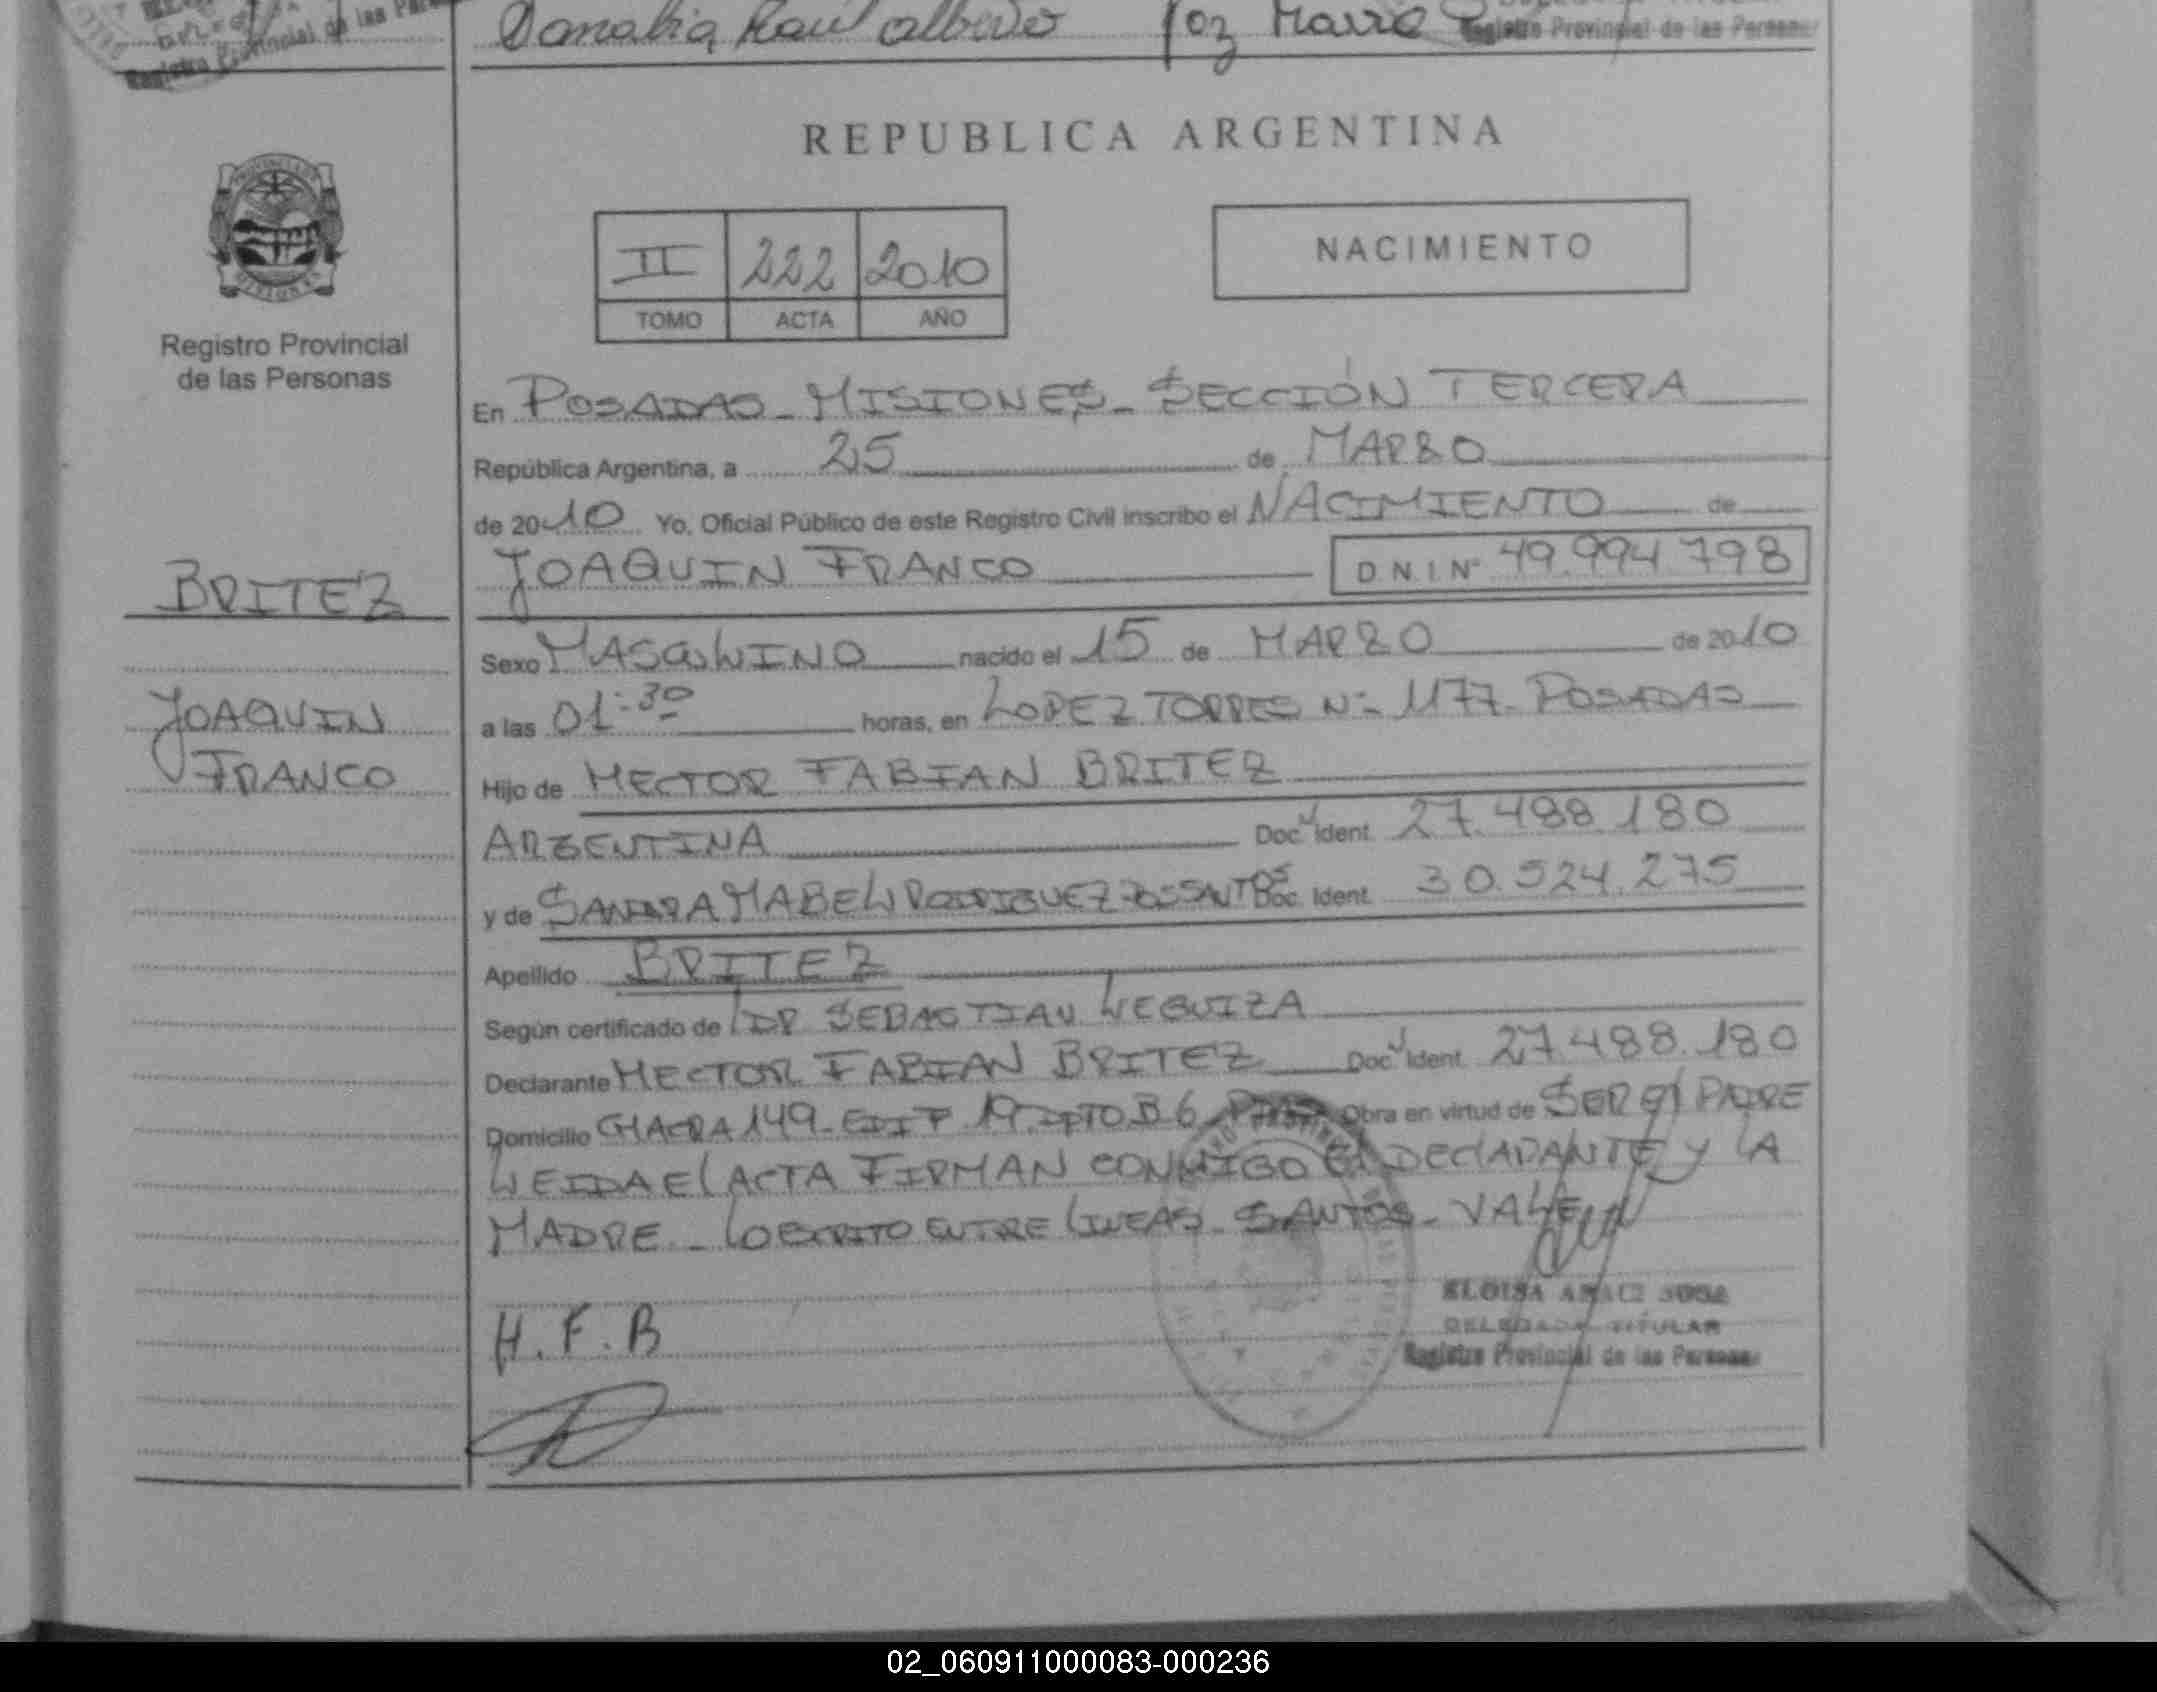 Registro Provincial de las
Registro Provincial de las Personas
REPUBLICA ARGENTINA
II 222 2010
TOMO ACTA AÑO
NACIMIENTO
Registro Provincial
de las Personas
En POSADAS - MISIONES - SECCIÓN TERCERA
República Argentina, a 25 de MARZO
de 2010 Yo, Oficial Público de este Registro Civil inscribo el NACIMIENTO de
JOAQUIN FRANCO D N I Nº 49.994.798
BRITEZ
JOAQUIN
FRANCO
Sexo MASCULINO nacido el 15 de MARZO de 2010
a las 01:30 horas, en LOPEZ TORRES Nº 1177 - POSADAS
Hijo de HECTOR FABIAN BRITEZ
ARGENTINA Doc. Ident. 27.488.180
y de SANDRA MABEL RODRIGUEZ DOS SANTOS Doc. Ident. 30.524.275
Apellido BRITEZ
Según certificado de DR SEBASTIAN LEGUIZA
Declarante HECTOR FABIAN BRITEZ Doc. Ident. 27.488.180
Domicilio CHACRA 149 - EDIF 19 DPTO B 6 Obra en virtud de SER EL PADRE
LEIDA EL ACTA FIRMAN CONMIGO EL DECLARANTE Y LA
MADRE - LO ESCRITO ENTRE LINEAS - SANTOS - VALE
H.F.B
DELEGADA TITULAR
Registro Provincial de las Personas
02_060911000083-000236